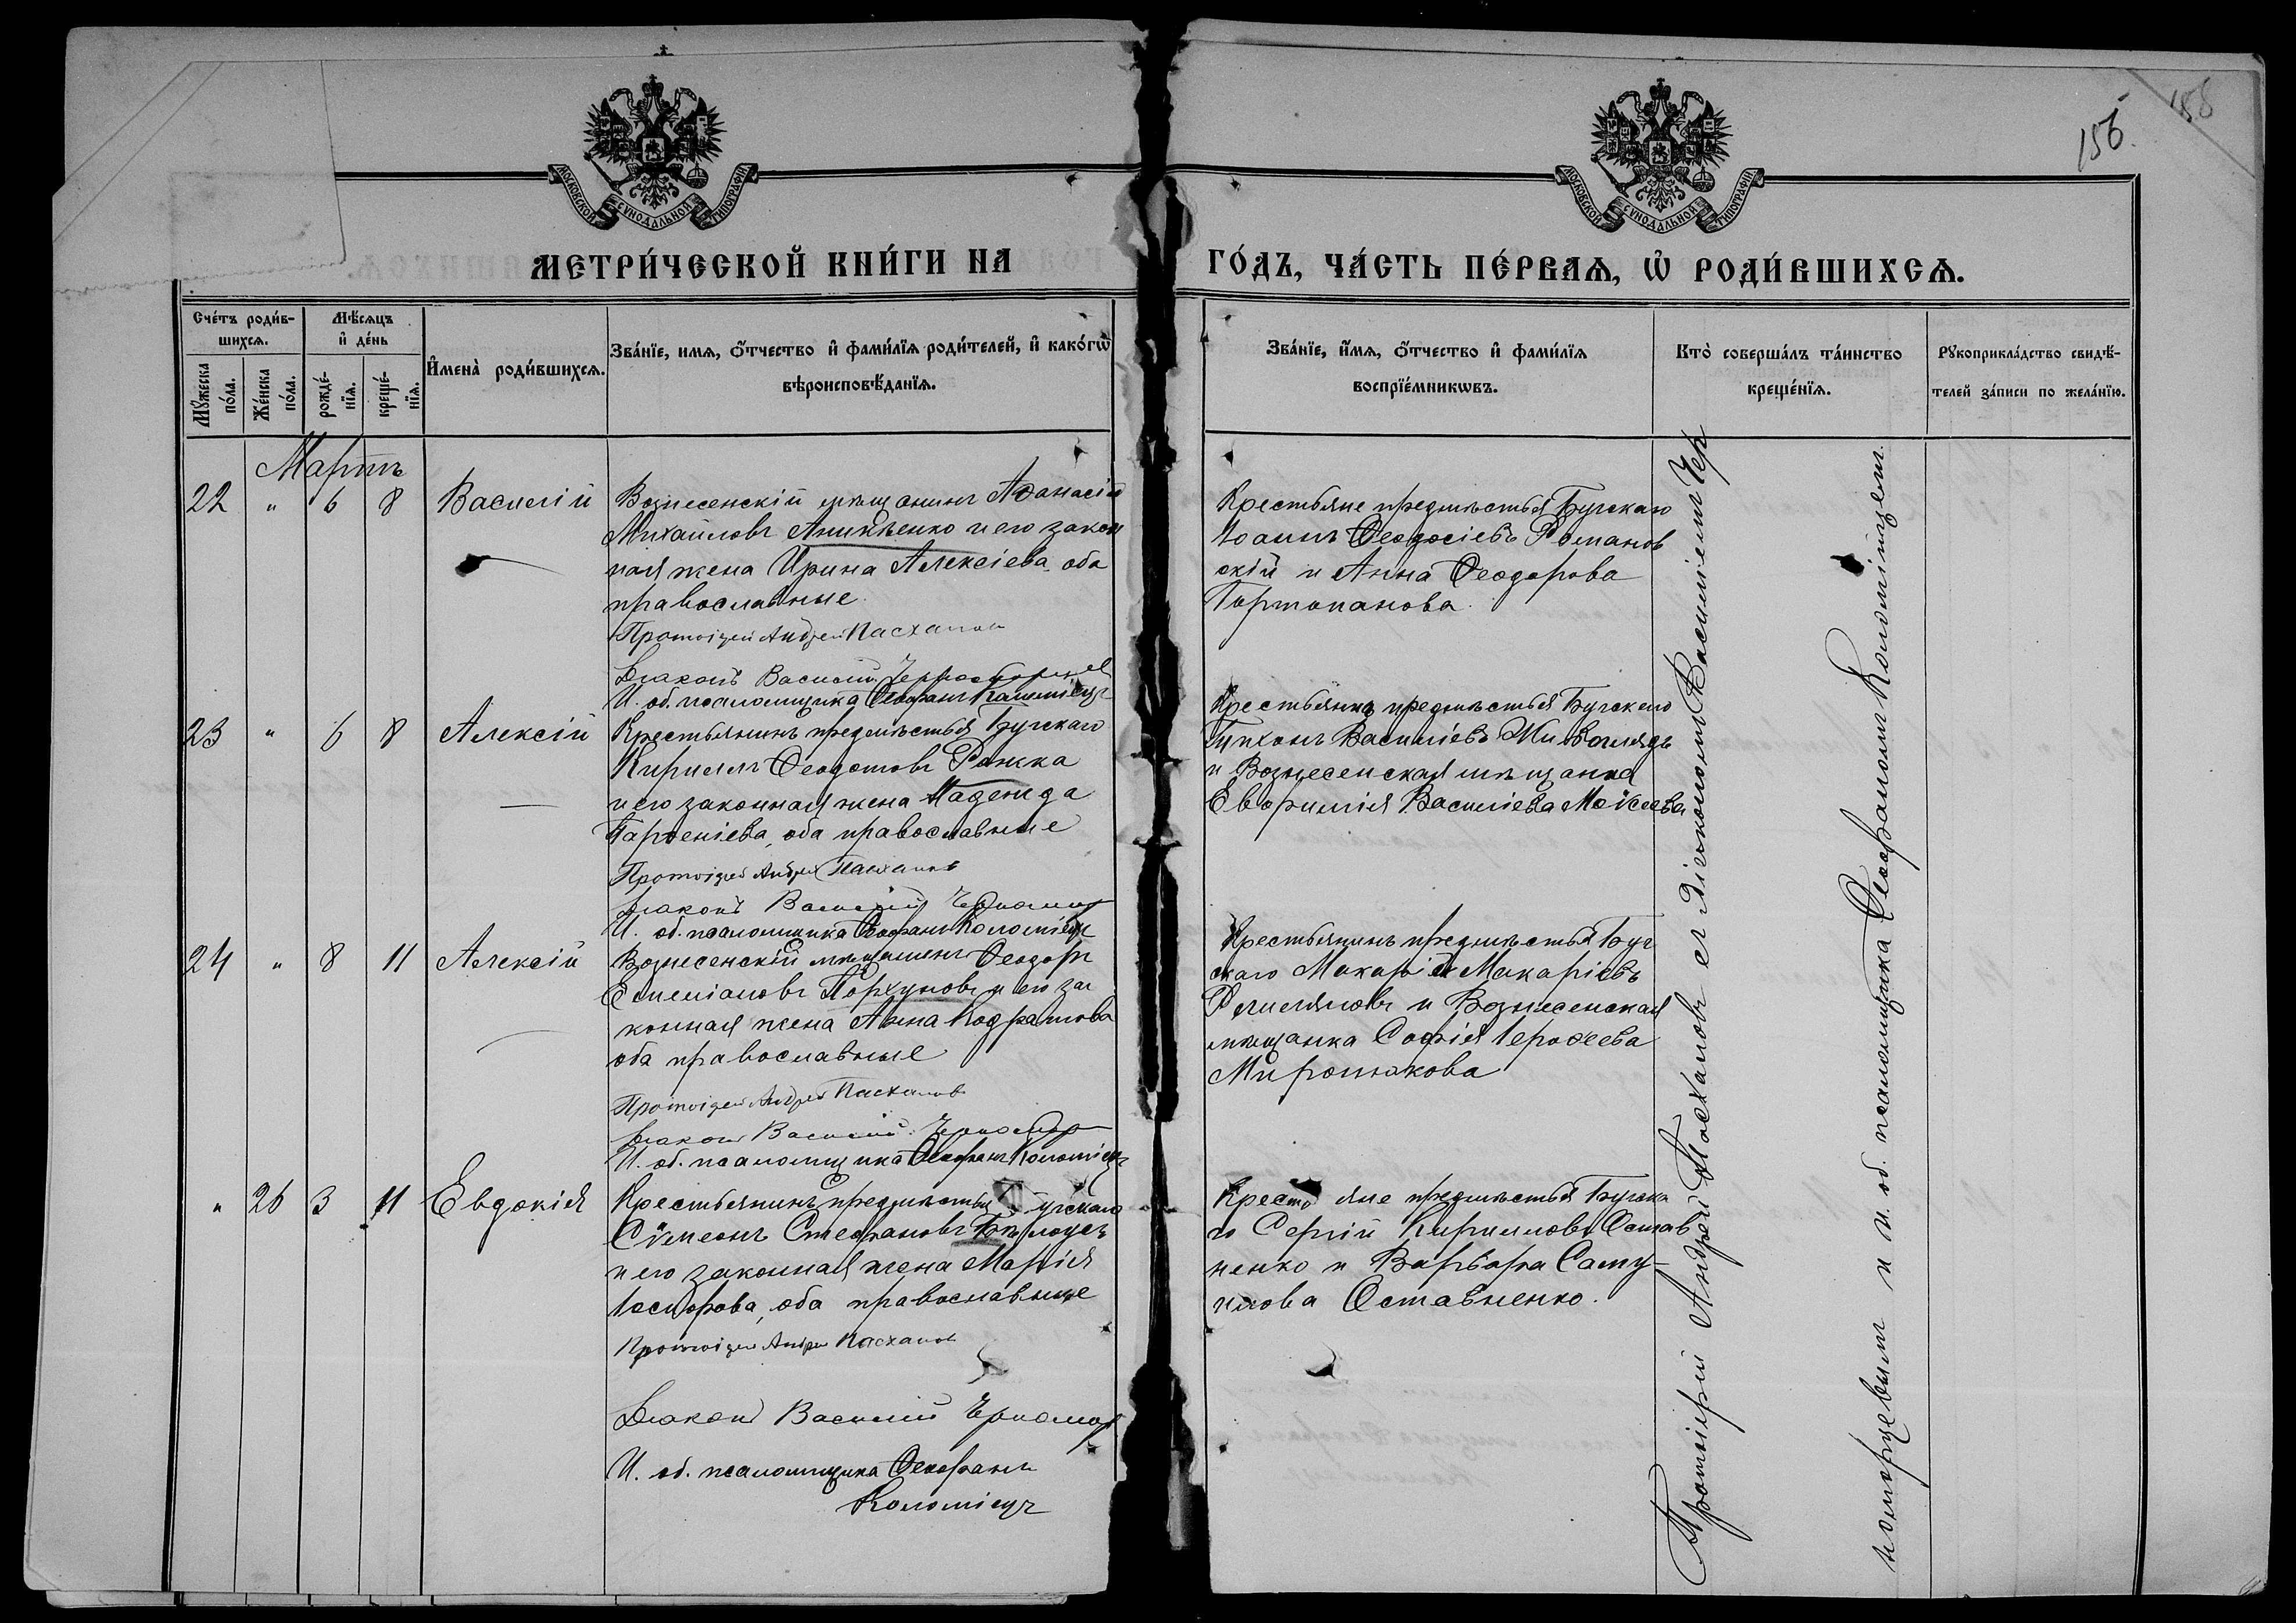 155.
188
МОСКОВСКОЙ СѴНОДАЛЬНОЙ ТИПОГРАФІИ
МОСКОВСКОЙ СѴНОДАЛЬНОЙ ТИПОГРАФІИ
МЕТРИ́ЧЕСКОЙ КНИ́ГИ НА ГО́ДЪ, ЧА́СТЬ ПЕ́РВАѦ, Ѡ҆ РОДИ́ВШИХСѦ.
Сче́тъ роди́в-
шихсѧ.
Мꙋ́жеска по́ла.
Же́нска по́ла.
Мѣ́сѧцъ
и҆ де́нь
рожде́-нїѧ.
креще́-нїѧ.
И҆мена̀ роди́вшихсѧ.
Зва́нїе, имѧ, ѻ҆́тчество и҆ фами́лїѧ роди́телей, и҆ како́гѡ
вѣроисповѣ́данїѧ.
Зва́нїе, и҆́мѧ, ѻ҆́тчество и҆ фами́лїѧ
воспрїе́мникѡвъ.
Кто̀ соверша́лъ та́инство
креще́нїѧ.
Рꙋкоприкла́дство свидѣ́-
телей за́писи по жела́нїю.
Мартъ
22 " 6 8 Василій
Вознесенскій мѣщанинъ Аѳанасій
Михайловъ Аникѣенко и его закон
ная жена Ирина Алексіева оба
православные
Протоіерей Андрей Пасхаловъ
Діаконъ Василій Черноморцевъ
И. об. псаломщика Ѳеофанъ Коломіецъ
Крестьяне предмѣстья Бугскаго
Іоаннъ Ѳеодосіевъ Романов
скій и Анна Ѳеодорова
Портопанова
23 " 6 8 Алексій
Крестьянинъ предмѣстья Бугскаго
Кириллъ Ѳеодотовъ Рожка
и его законная жена Надежда
Парѳеніева, оба православные
Протоіерей Андрей Пасхаловъ
Діаконъ Василій Черномор
И. об. псаломщика Ѳеофанъ Коломіецъ
Крестьянинъ предмѣстья Бугскаго
Тихонъ Василіевъ
и Вознесенская мѣщанка
Евфимія Василіева Моісеева
24 " 8 11 Алексій
Вознесенскій мѣщанинъ Ѳеодоръ
Емеліановъ Порхуновъ и его за
конная жена Анна Кодратова
оба православные
Протоіерей Андрей Пасхаловъ
Діаконъ Василій Черномор
И. об. псаломщика Ѳеофанъ Коломіецъ
Крестьянинъ предмѣстья Буг
скаго Макарій Макаріевъ
и Вознесенская
мѣщанка Софія Іероѳеева
Мирошнкова
" 26 3 11 Евдокія
Крестьянинъ предмѣстья Бугскаго
Сѵмеонъ Стефановъ Бѣлоусъ
и его законная жена Марія
Іосифова, оба православные
Протоіерей Андрей Пасхаловъ
Діаконъ Василій Черномор
И. об. псаломщика Ѳеофанъ
Коломіецъ
Крестьяне предмѣстья Бугска
го Сергій Кирилловъ Остав
ненко и Варвара Саму-
илова Оставненко.
Протоіерей Андрей Пасхаловъ съ діакономъ Василіемъ Чер
номорцевымъ и и. об. псаломщика Ѳеофаномъ Коломійцемъ.